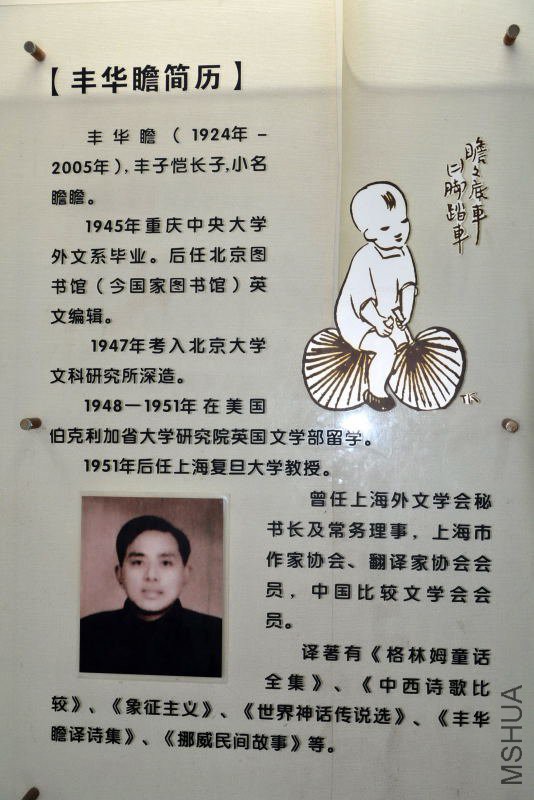 【丰华瞻简历】
丰华瞻（1924年－
2005年），丰子恺长子，小名
瞻瞻。
1945年重庆中央大学
外文系毕业。后任北京图
书馆（今国家图书馆）英
文编辑。
1947年考入北京大学
文科研究所深造。
1948－1951年在美国
伯克利加省大学研究院英国文学部留学。
1951年后任上海复旦大学教授。
瞻瞻底車
㈡脚踏車
TK
曾任上海外文学会秘
书长及常务理事，上海市
作家协会、翻译家协会会
员，中国比较文学会会
员。
译著有《格林姆童话
全集》、《中西诗歌比
较》、《象征主义》、《世界神话传说选》、《丰华
瞻译诗集》、《挪威民间故事》等。
MSHUA